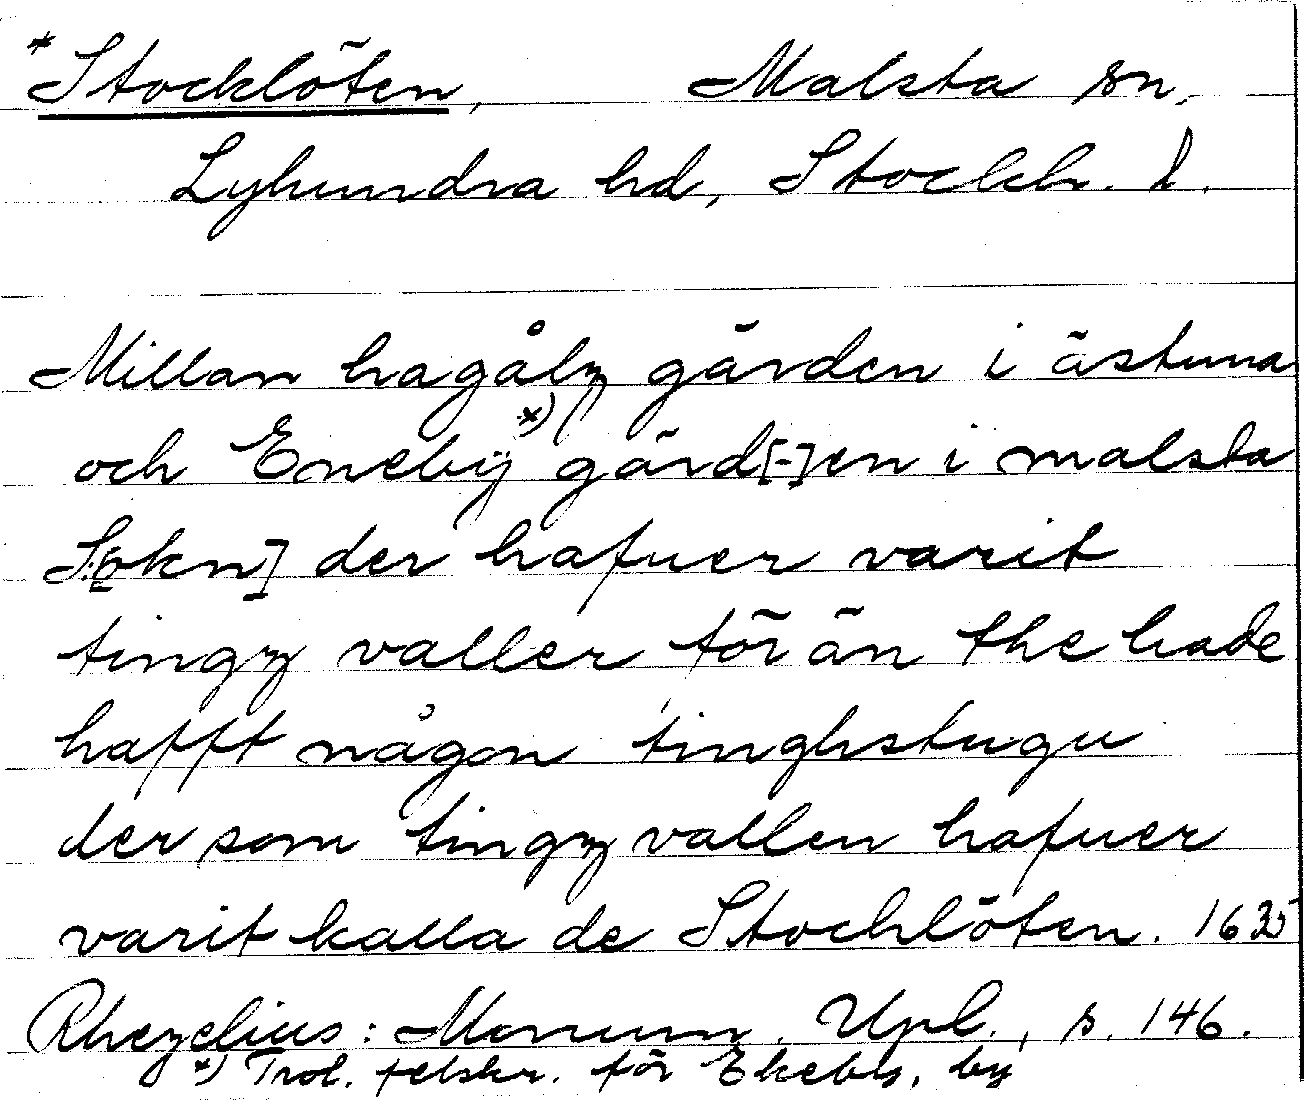 *Stocklöten, Malsta sn,
Lyhundra hd, Stockh. l.
Millan hagålz gården i ästuna
och Enebÿ *) gård[-]en i malsta
S[okn] der hafuer varit
tingz valler för än the hade
hafft någon tinghstugu
der som tingz vallen hafuer
varit kalla de Stochlöten. 1635
Rhezelius: Monum. Upl., s. 146.
*) Trol. felskr. för Ekeby, by